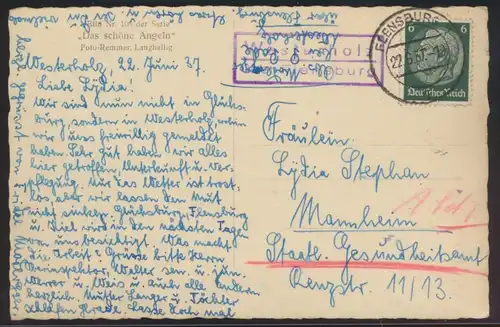 Bild Nr. 106 der Serie
"Das schöne Angeln"
Foto-Remmer, Langballig
Westerholz, 22. Juni 37.
Liebe Lydia!
Wir sind nun nicht in Glücks-
burg, sondern in Westerholz, wohin
wir uns freiwillig gemeldet
haben. Sehr gut haben wir alles
hier getroffen, Unterkunft u. Ver-
pflegung. Nur das Wetter ist trost-
los, aber wir lassen den Mut
nicht sinken. Glücksburg, Flensburg
u. Kiel wird in den nächsten Tagen
von uns besichtigt. Was macht
die Arbeit? Grüsse bitte Herrn
Walter sen. u. jun.
u. Weis u. auch alle andern
herzlich. Mutter Langer u. Töchter
schlafen gerade. Lasse doch mal
über Flensburg
Westerholz
Flensburg
FLENSBURG
22.6.37
6
6
Deutsches Reich
Fräulein
Lydia Stephan
Mannheim
Staatl. Gesundheitsamt
Renzstr. 11/13.